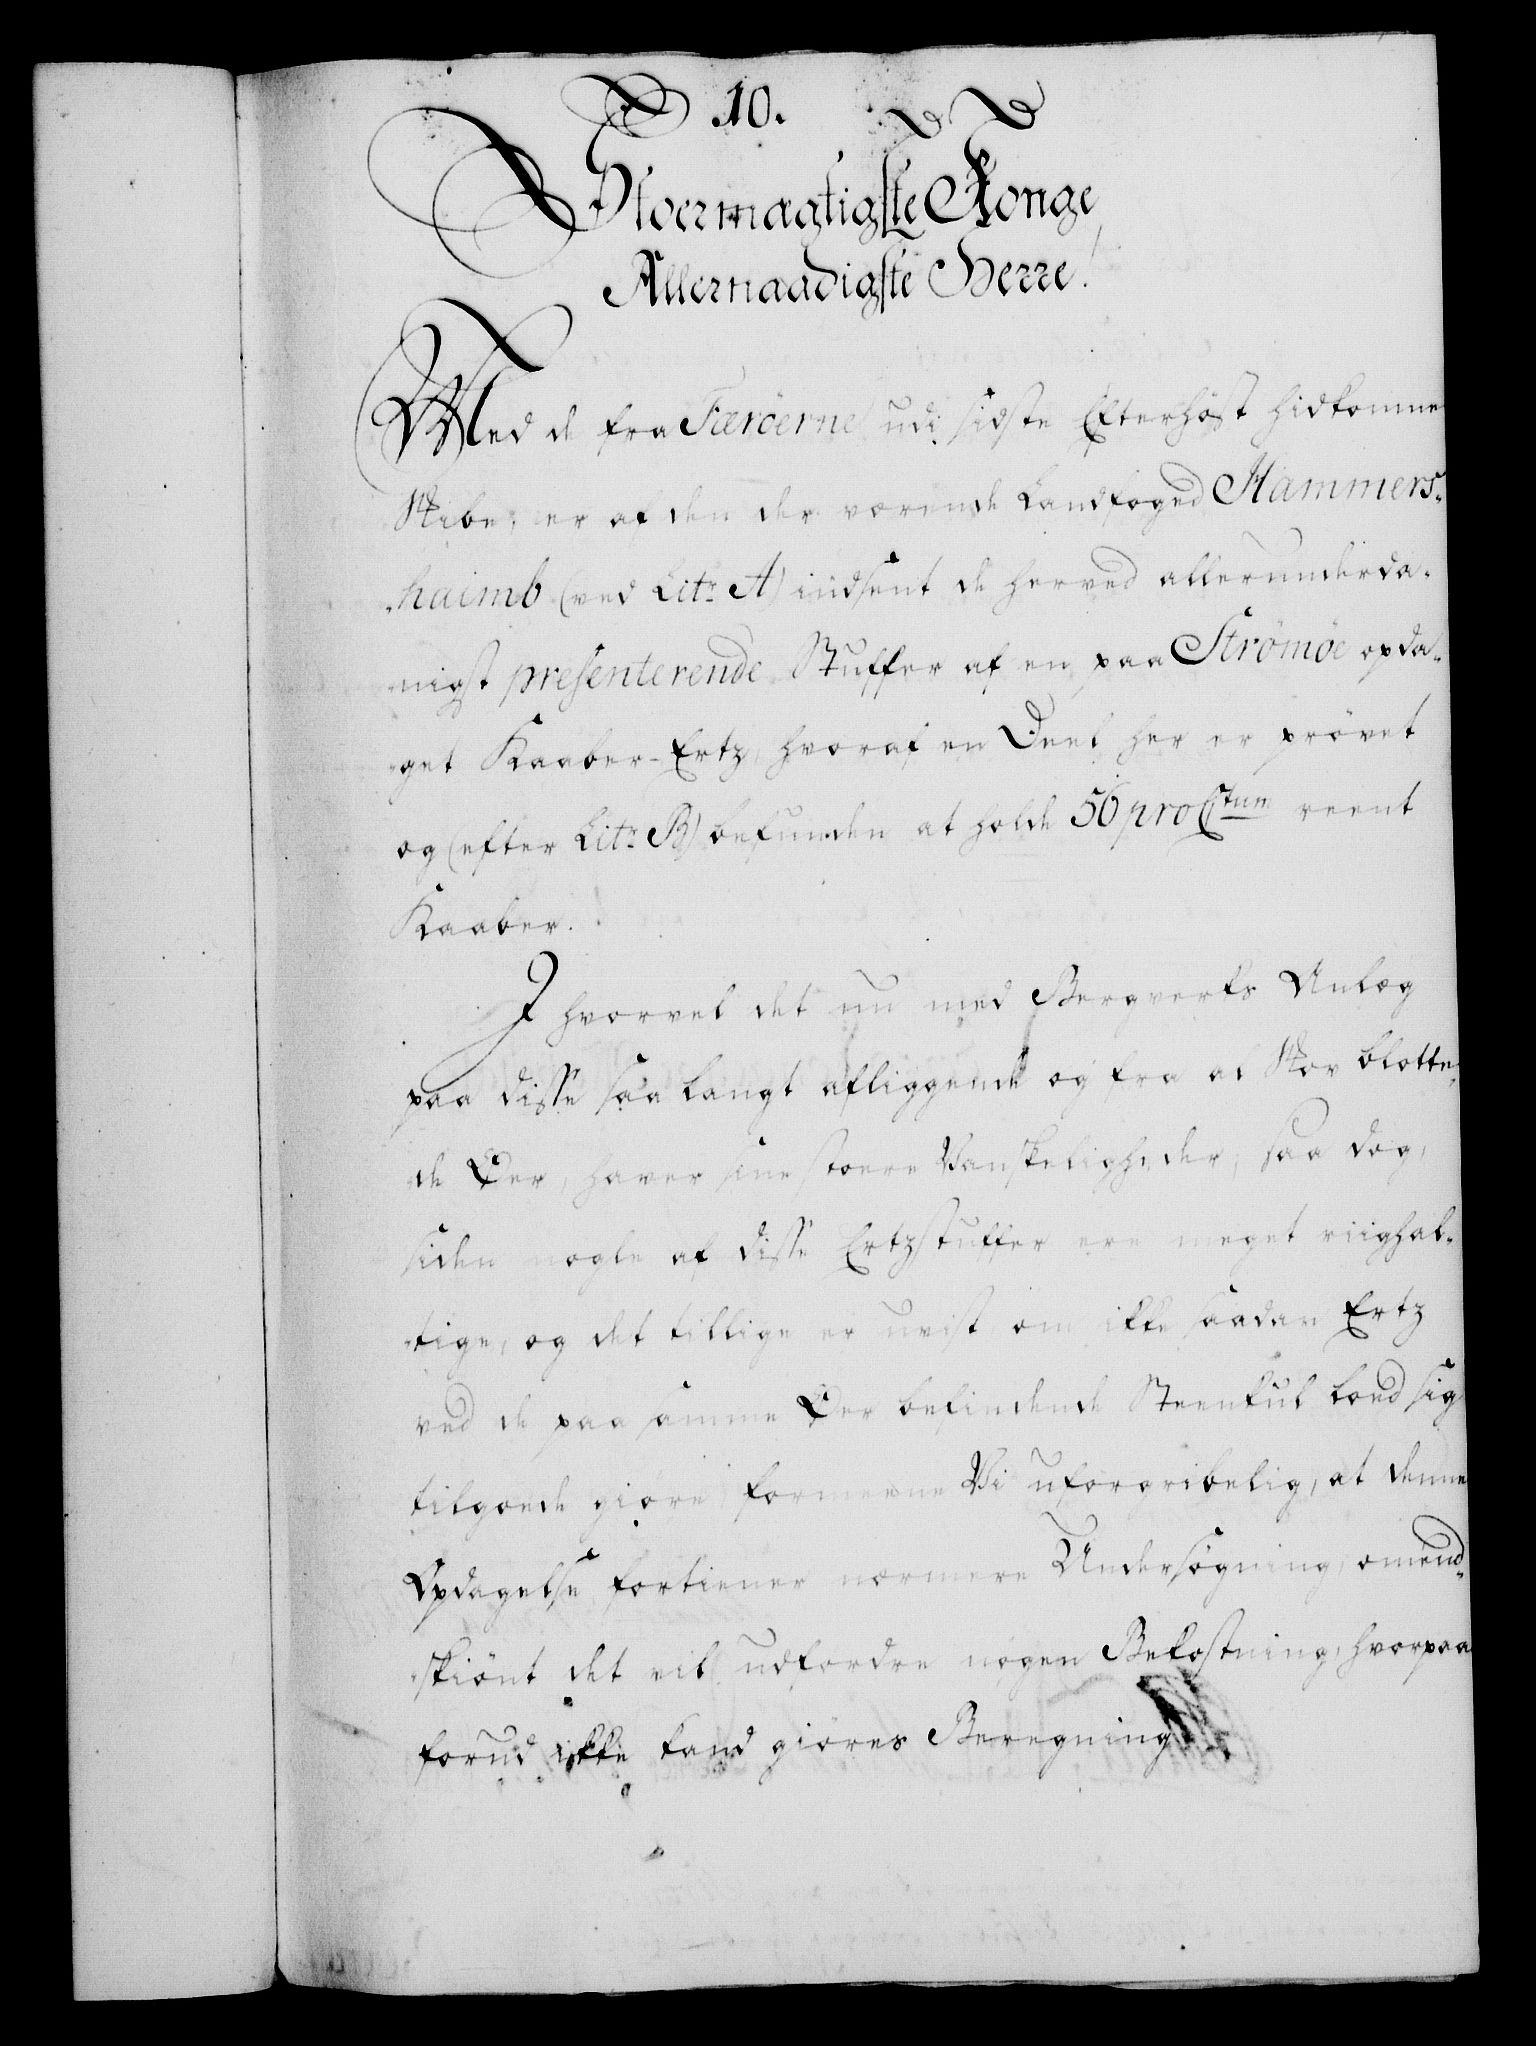 10.
Stoermægtigste Konge,
Allernaadigste Herre!
Med de fra Færöerne udi sidste Efterhöst hidkomne
Skibe, er af den der værende Landfoged Hammers-
haimb (ved Litr A) indsent de herved allerunderda-
nigst presenterende Stuffer af en paa Strömöe opda-
get Kaaber-Ertz, hvoraf en Deel her er prövet
og (efter Litr B) befunden at holde 56 pro Ctum reent
Kaaber.
I hvorvel det nu med Bergverks Anlæg
paa disse saa langt afliggende og fra al Skov blotte-
de Öer, haver sine stoere Vanskeligheder, saa dog,
siden nogle af disse Ertzstuffer ere meget riighal-
tige, og det tillige er uvist om ikke saadan Ertz
ved de paa samme Öer befindende Steenkul loed sig
tilgoede giöre, formeene Vi uforgribelig, at denne
Opdagelse fortiener nærmere Undersögning, omend-
skiönt det vil udfordre nogen Bekostning, hvorpaa
forud ikke kand giöres Beregning.